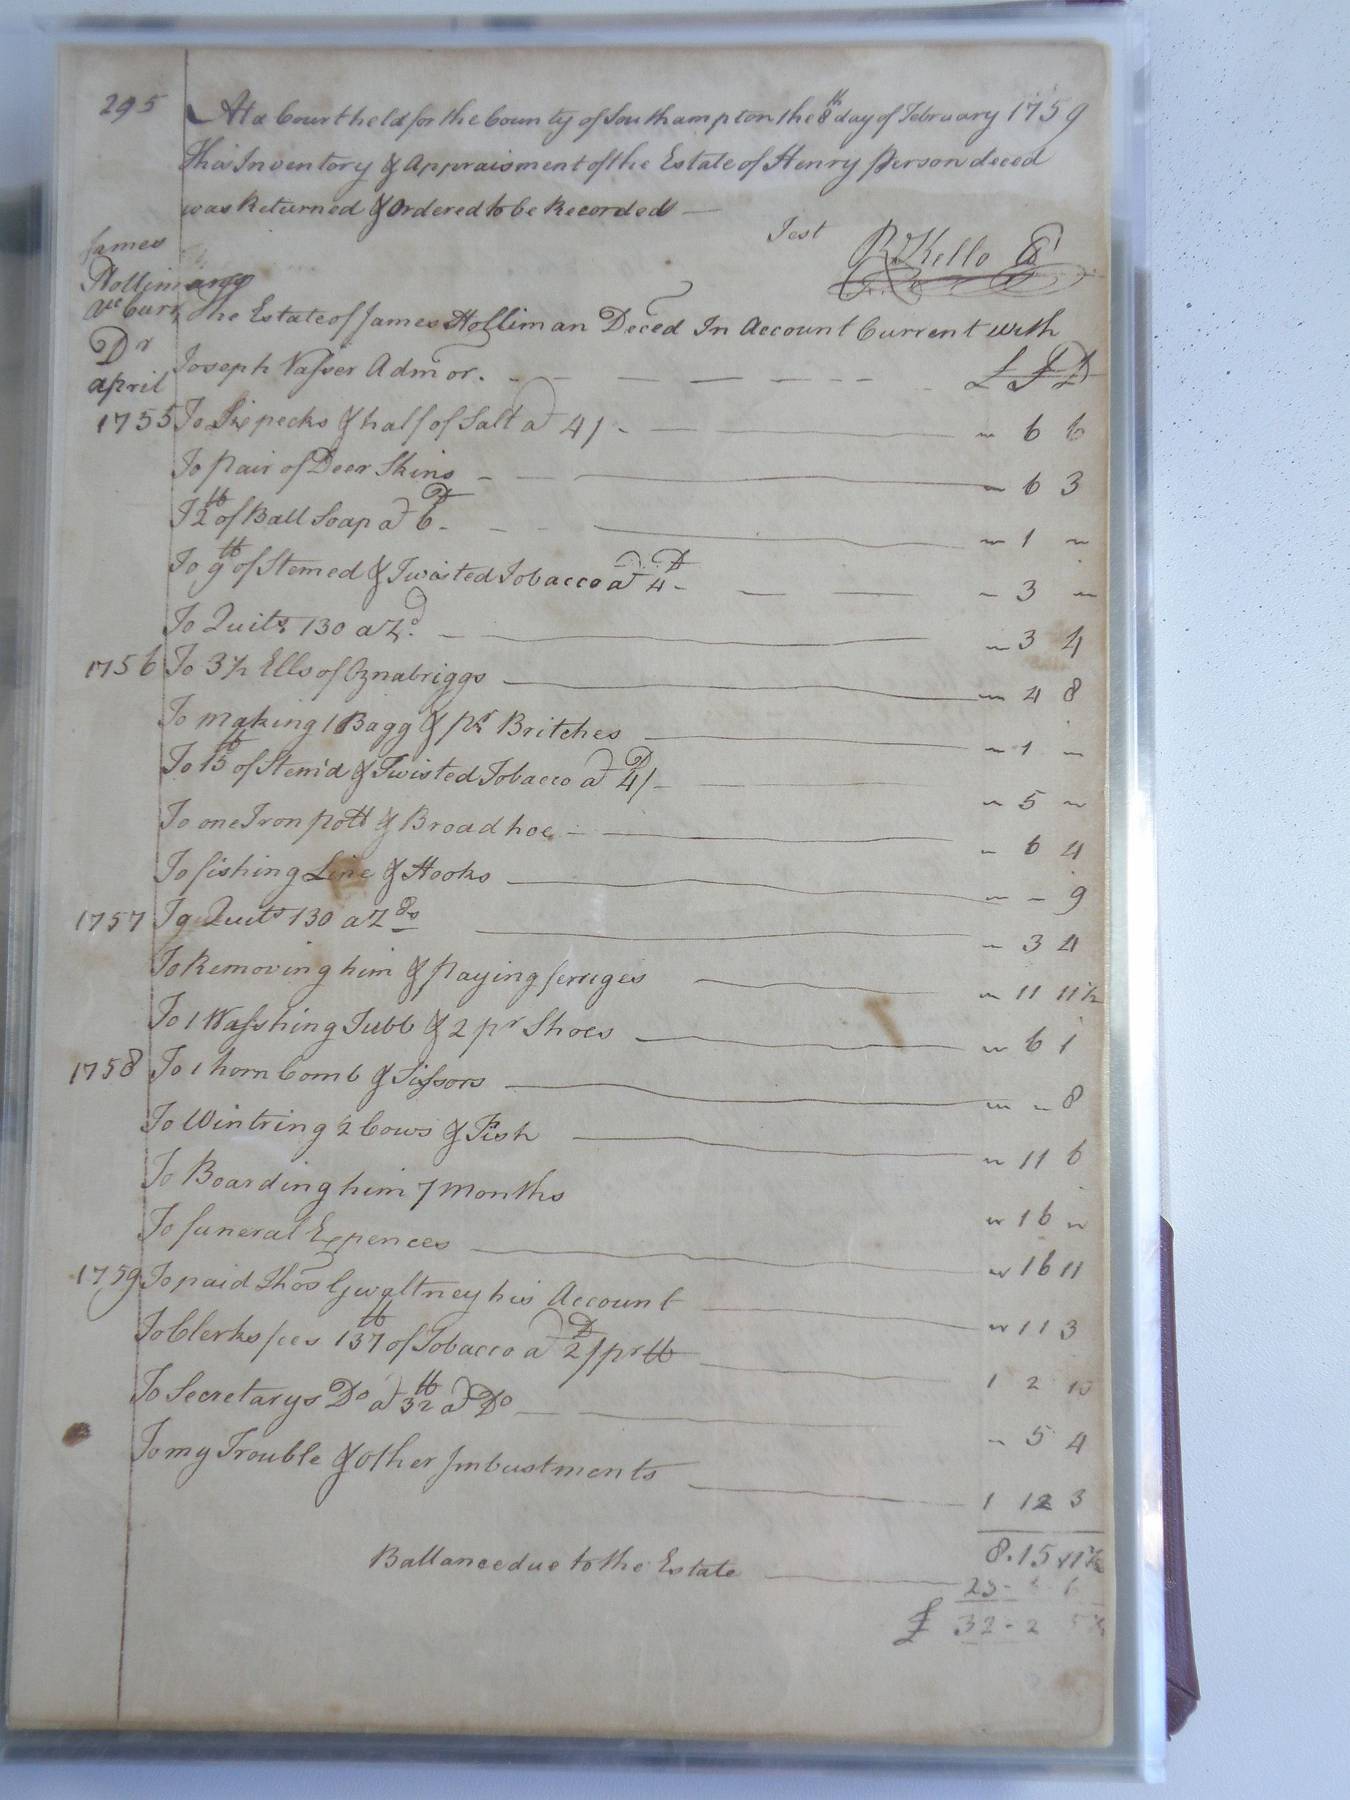 295
At a Court held for the County of Southampton the 8th day of February 1759
this Inventory & Appraisment of the Estate of Henry Person deced
was Returned & Ordered to be Recorded —
Test RdKello
James
Hollimans
acc Curr
The Estate of James Holliman Deced In Account Current with
Dr
Joseph Vasser Admor. £ S D
april
1755 To Six pecks & half of Salt a 4/ " 6 6
To pair of Deer Skins " 6 3
To 2 lb of Ball Soap a 6D " 1 "
To 9 lb of Stemed & Twisted Tobacco a 4D " 3 "
To Quits 130 a " 3 4
1756 To 3½ Ells of Oznabriggs " 4 8
To making 1 Bagg & pr Britches " 1 "
To 15 lb of Stem'd & Twisted Tobacco a 4D/ " 5 "
To one Iron pott & Broad hoe " 6 4
To fishing Line & Hooks " " 9
1757 To Quits 130 a " 3 4
To Removing him & paying ferriges " 11 11½
To 1 Wasshing Tubb & 2 pr Shoes " 6 1
1758 To 1 horn Comb & Sissors " " 8
To Wintring 2 Cows & Fish " 11 6
To Boarding him 7 Months " 16 "
To funeral Expences " 16 11
1759 To paid Thos Gwaltney his Account " 11 3
To Clerks fees 137 lb of Tobacco a 2D/ pr lb 1 2 10
To Secretarys Do a 32 lb a Do " 5 4
To my Trouble & other Imbustments 1 12 3
8.15 11½
Ballance due to the Estate 23- 6
£ 32-2 5½